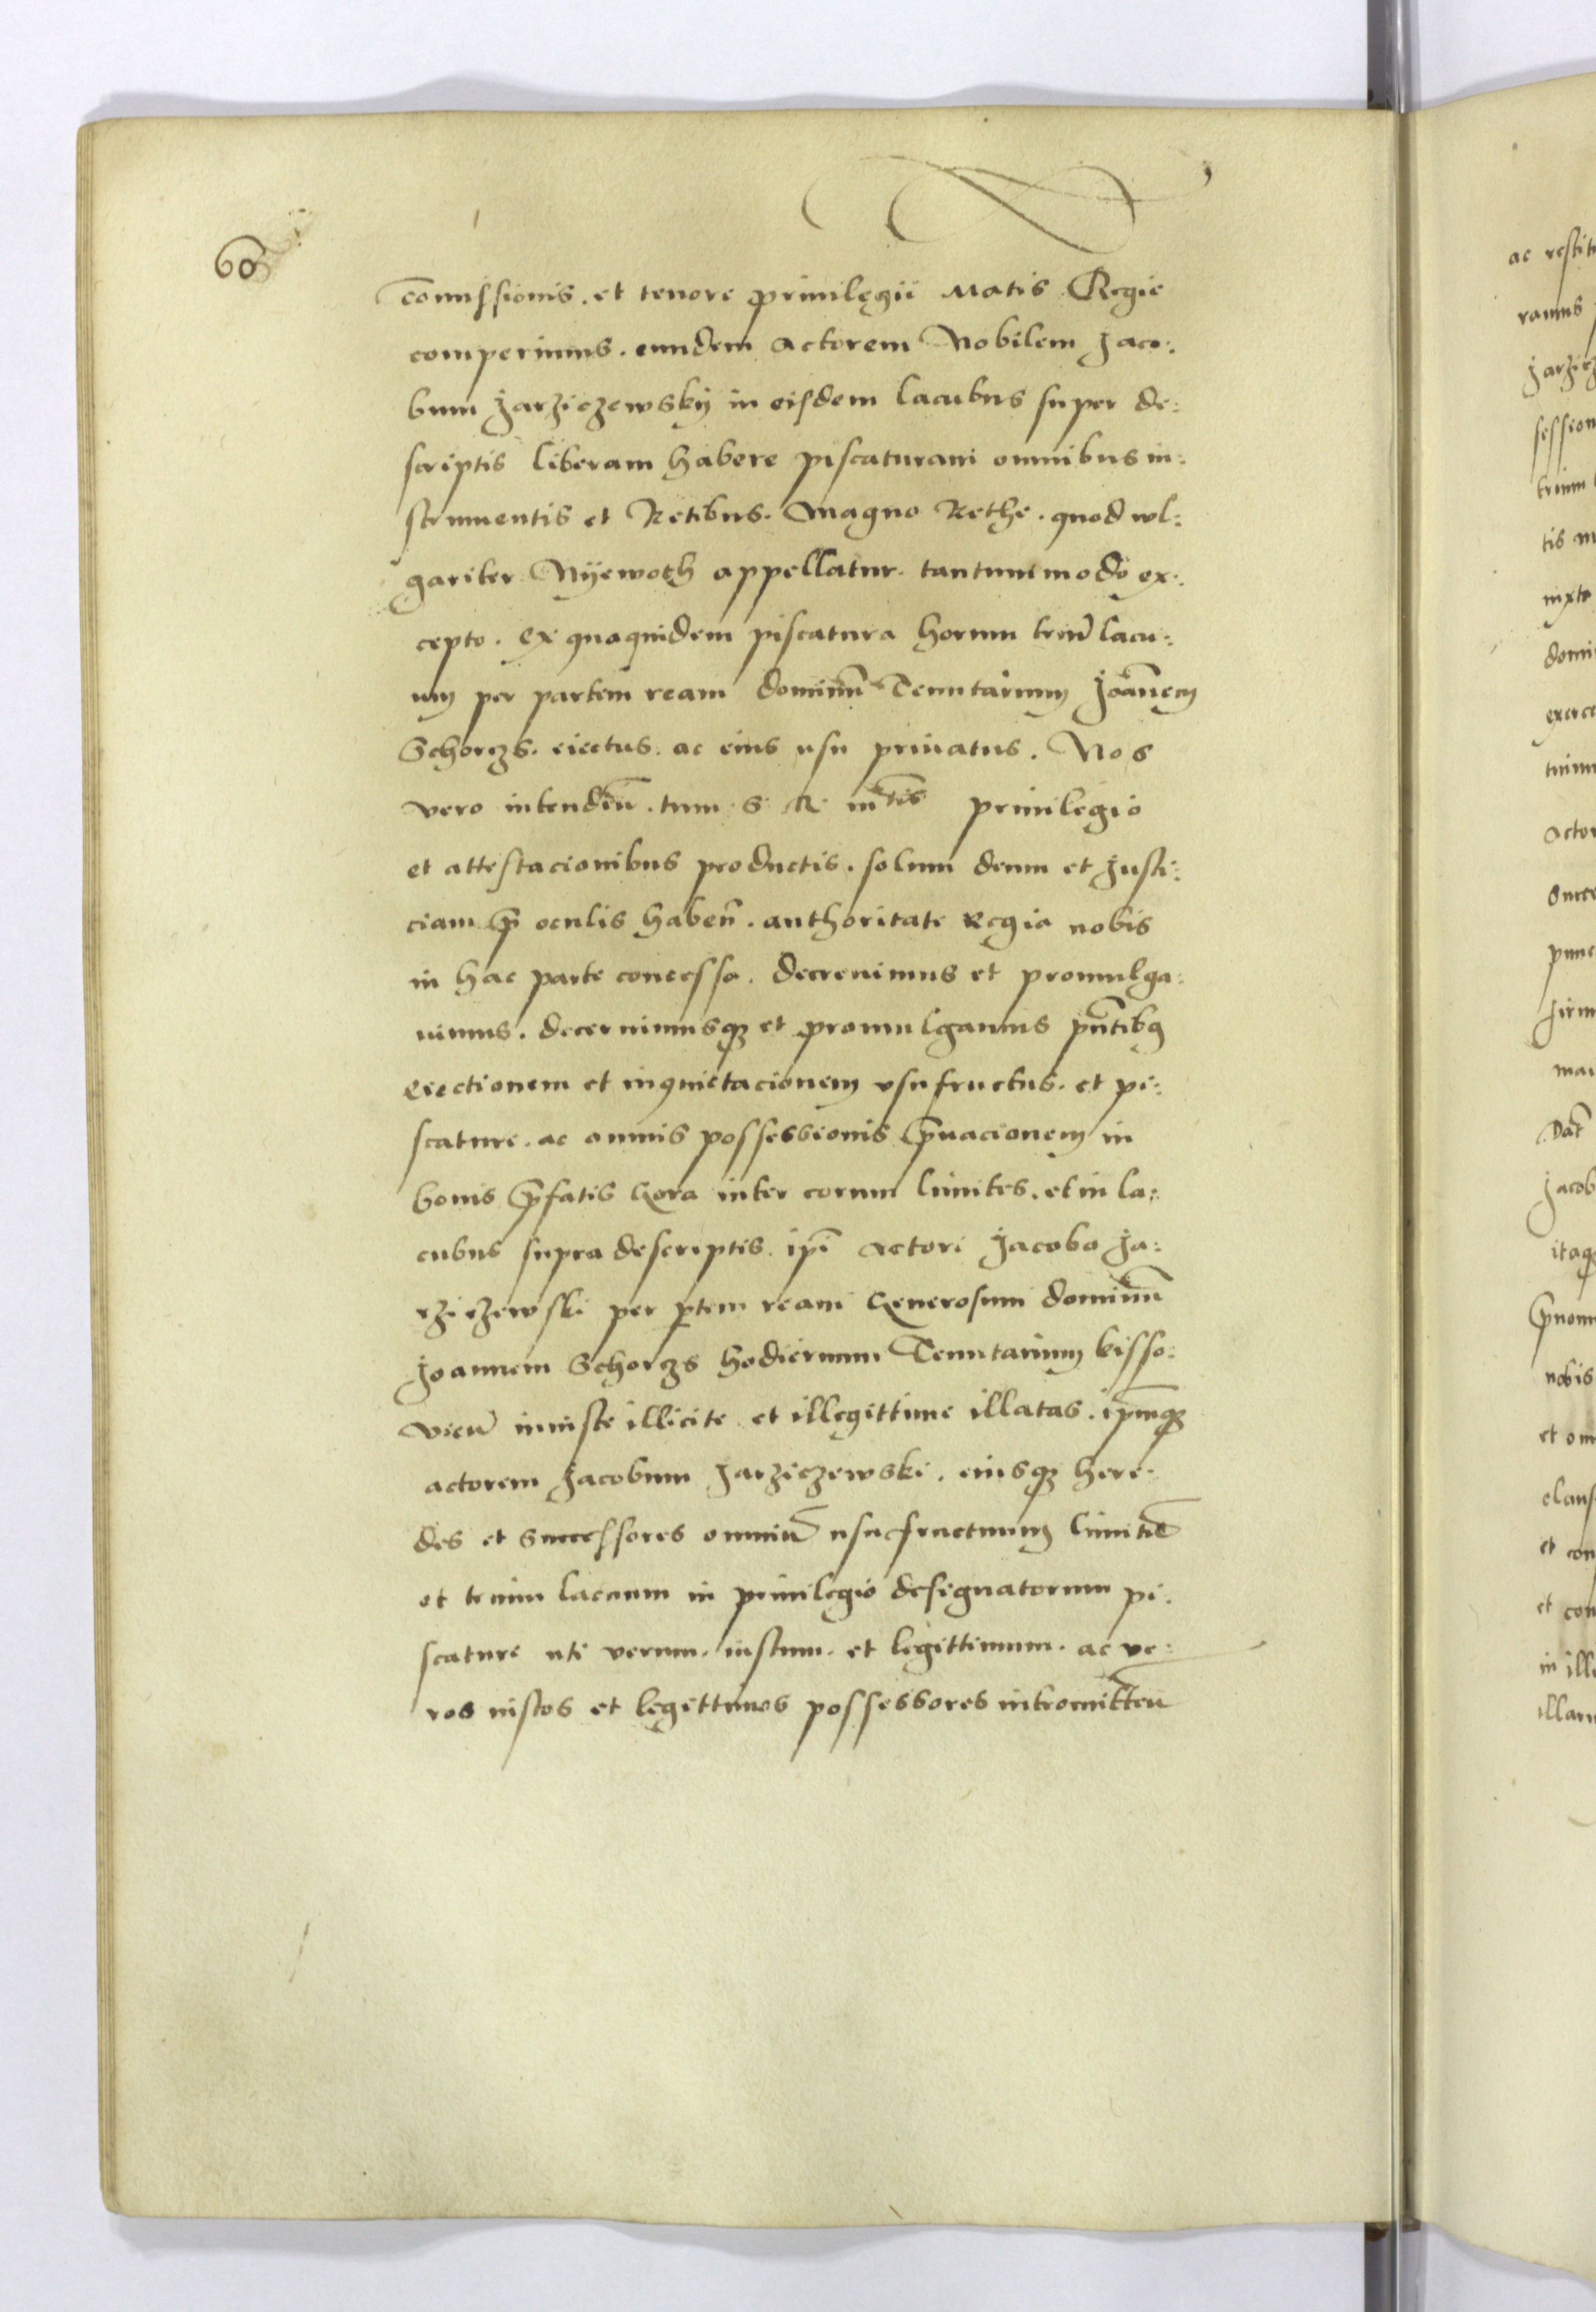 60
co͞missionis. et tenore priuilegii Matis Regie
comperimus. eundem actorem Nobilem Jaco:
bum Jarzieżewskÿ in eisdem lacubus super de:
scriptis liberam habere piscaturam omnibus in:
strumentis et Retibus. Magno Rethe. quod wl:
gariter Nÿewoth appellatur. tantummodo ex:
cepto. Ex quaquidem piscatura horum triu͞ lacu:
um per partem ream dominu͞ Tenutarium Joa͞nem
Schorczs. eiectus. ac eius usu priuatus. Nos
vero intenden͞. tum. S. R. m͞tis priuilegio
et attestacionibus productis. solum deum et Justi:
ciam p͞ oculis haben͞. authoritate Regia nobis
in hac parte concessa. decreuimus et promulga:
uimus. decernimusqꝫ et promulgamus p͞ntibꝰ
Eiectionem et inquietacionem vsufructus. et pi:
scature. ac omnis possessionis p͞uacionem in
bonis p͞fatis Gora inter eorum limites. et in la:
cubus supra descriptis. ip͞i actori Jacobo Ja:
rzieżewski per ꝑtem ream Generosum dominu͞
Joannem Schorczs hodiernum Tenutarium kisso:
vien͞ iniuste illicite et illegittime illatas. ip͞mqꝫ
actorem Jacobum Jarzieżewski. eiusqꝫ here:
des et successores omniu͞ usufructuum limitu͞
et trium lacuum in priuilegio designatorum pi:
scature uti verum. iustum. et legittimum. ac ve:
ros iustos et legittimos possessores intromitten͞
ac restit
ramus
Jarzież
session
trium
tis m
iuxta
domi
exerce
tuim
actor
succe
pune
firm
man
Dat͞
Jacob
itaqꝫ
p͞nom
nobis
et om
claus
et con
et con
in ill
illaru